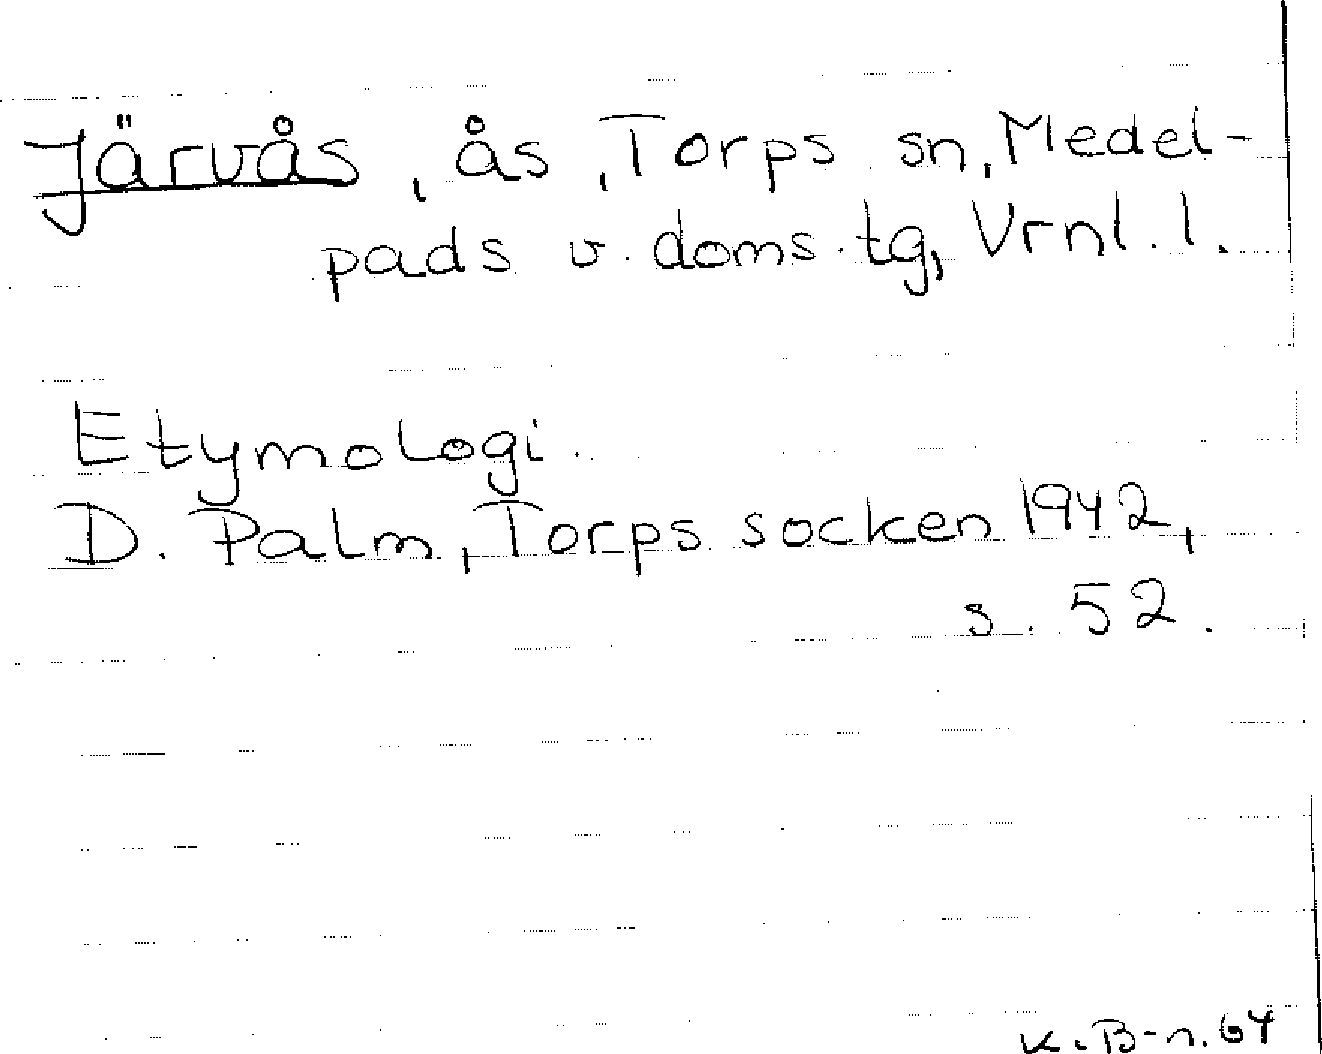 Järvås, ås, Torps sn, Medel-
pads v. doms.tg, Vrnl. l.
Etymologi.
D. Palm, Torps socken 1942,
s. 52.
K. B-n. 64